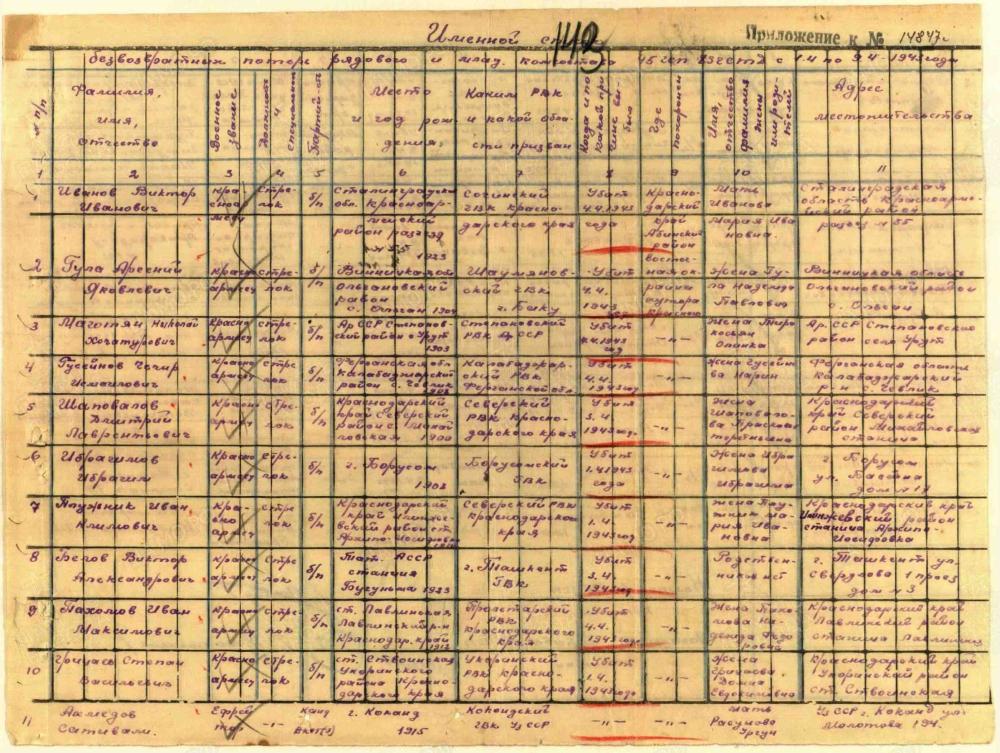 Именной
142
Приложение к № 14847с
безвозвратных потерь рядового и млад. комсостава 45 с 1.4 по 9.4-1943 года
№ п/п
Фамилия, имя, отчество
Военное звание
Должность и специальность
Партийн-сть
Место и год рождения,
Каким РВК и какой области призван
Когда и по какой причине выбыл
Где похоронен
Имя, отчество фамилия жены или родителей
Адрес местожительства
1 2 3 4 5 6 7 8 9 10 11
1 Иванов Виктор Иванович
Красноармеец
Стрелок
б/п
Сталинградская обл. Красноармейский район разъезд № 55 1923
Сочинский ГВК Краснодарского края
Убит 4.4.1943 года
Краснодарский край Абинский район
Мать Иванова Мария Ивановна.
Сталинградская область Красноармейский район разъезд № 55
2 Гула Арсений Яковлевич
Красноармеец
стрелок
б/п
Винницкая обл Ольгановский район
Шаумяновский ГВК г. Баку
Убит 4.4. 1943
Жена Гула Надежда Павловна
Винницкая область Ольгановский район
3
Хочатурович
Красноармеец
стрелок
б/п
Ар.ССР Степанов-ский район 1903
Степановский РВК Ар ССР
Убит 4.4.1943 год
Жена
Ар. ССР Степановский район село
4 Гусейнов Исмаилович
Красноармеец
Стрелок
б/п
Ферганская область район с.
РВК Ферганской обл.
Убит 4.4. 1943 году
-"-
Жена Гусейнова
Ферганская область р-н
5 Шаповалов Дмитрий Лаврентьевич
Красноармеец
Стрелок
б/п
Краснодарский край Северский район с. 1900
Северский РВК Краснодарского края
Убит 3.4. 1943 год
-"-
Жена Шаповалова Прасковья Терентьевна
Краснодарский край Северский район Михайловская станица
6 Ибрагимов Ибрагим
Красноармеец
Стрелок
б/п
г. Борусом 1903
Борусомский ГВК
Убит 1.4.1943 года
-"-
Жена Ибрагимова
г. Борусом ул. дом № 17
7 Пнужник Иван Климович
Красноармеец
Стрелок
б/п
Краснодарский край
Северский РВК Краснодарского края
Убит 1.4. 1943 год
-"-
Жена Мария Ивановна
Краснодарский край район станица Архипо-Иосиповка
8 Белов Виктор Александрович
Красноармеец
Стрелок
б/п
Тат. АССР станция Бугульма 1923
г. Ташкент ГВК
Убит 3.4. 1943 год
-"-
Родственников нет
г. Ташкент ул. Свердлова 1 проезд дом № 3
9 Пахомов Иван Максимович
Красноармеец
Стрелок
б/п
ст. Лавлинская, Лавлинский р-н Краснодар. край 1912
Пролетарский РВК Краснодарского края
Убит 4.4. 1943 года
-"-
Жена Пахомова Надежда Федоровна
Краснодарский край Лавлинский район станица Лавлинская
10 Грицаев Степан Васильевич
Красноармеец
Стрелок
б/п
ст. Ствоинская Упоринского района Краснодарского края
Упоринский РВК Краснодарского края
Убит 1.4. 1943 года
-"-
Жена Евдокимовна
Краснодарский край Упоринский район ст. Ствоинская
11 Ахмедов Сативали.
Ефрейтор
-"-
Канд ВКП(б)
г. Коканд 1915
Кокандский ГВК Уз ССР
-"-
-"-
Мать Расулова
Уз ССР г. Коканд ул. Молотова 194.